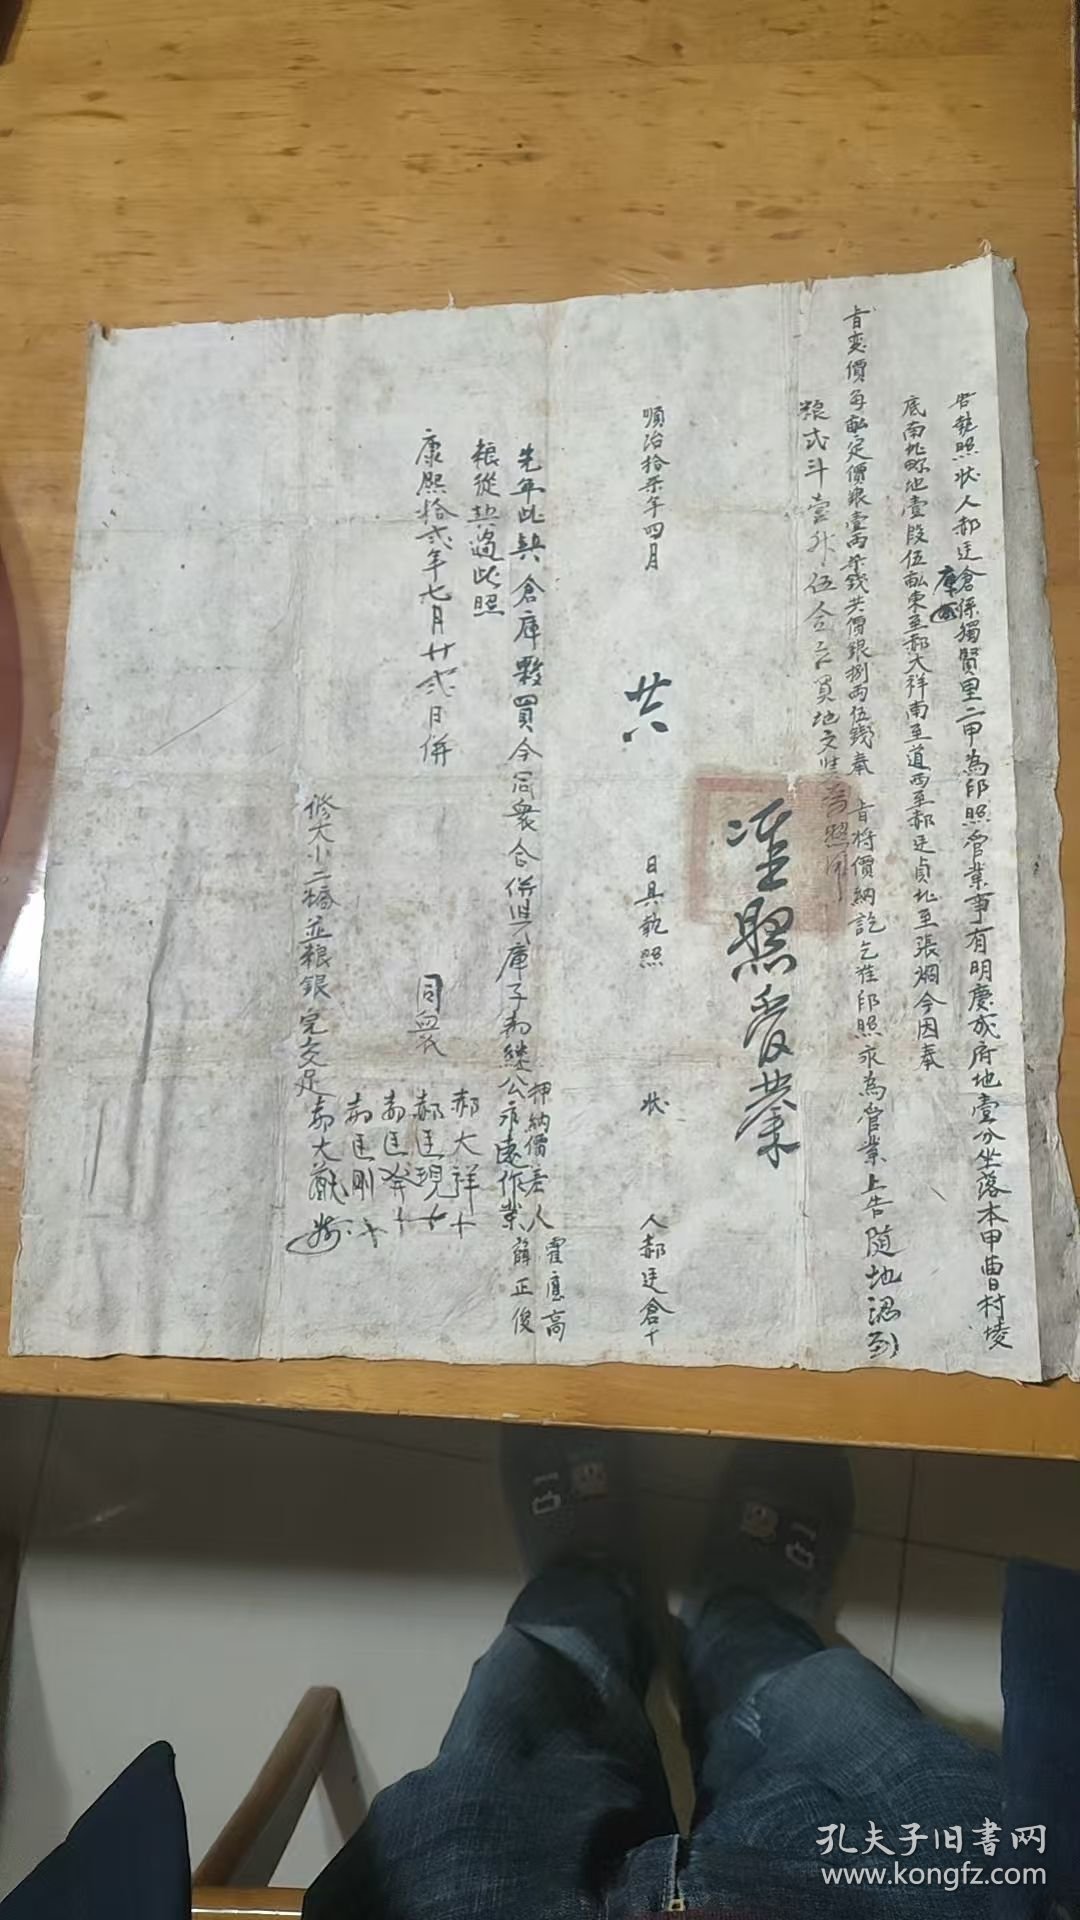 告執照狀人郝廷倉係獨賢里二甲為印照管業事有明慶成府地壹分坐落本甲曹村堎
庫
底南北畛地壹段伍畝東至郝大祥南至道西至郝廷貞北至張烱今因奉
旨变價每畝定價銀壹兩柒錢共價銀捌兩伍錢奉 旨將價納訖乞准印照永為管業上告隨地認到
粮弍斗壹升伍合 買地文 為照用
准照管業
順治拾柒年四月 廿六 日具執照 狀 人郝廷倉十
押納價差人 霍應高
薛正俊
先年此與倉庫夥買今同衆合併與庫子 繼公永遠作業
粮從此過此照
康熙拾弍年七月廿弍日併 同 郝大祥十
郝廷現十
郝廷 十
郝廷剛十
修大小二橋並粮銀完交足 郝大
孔夫子旧書网
www.kongfz.com